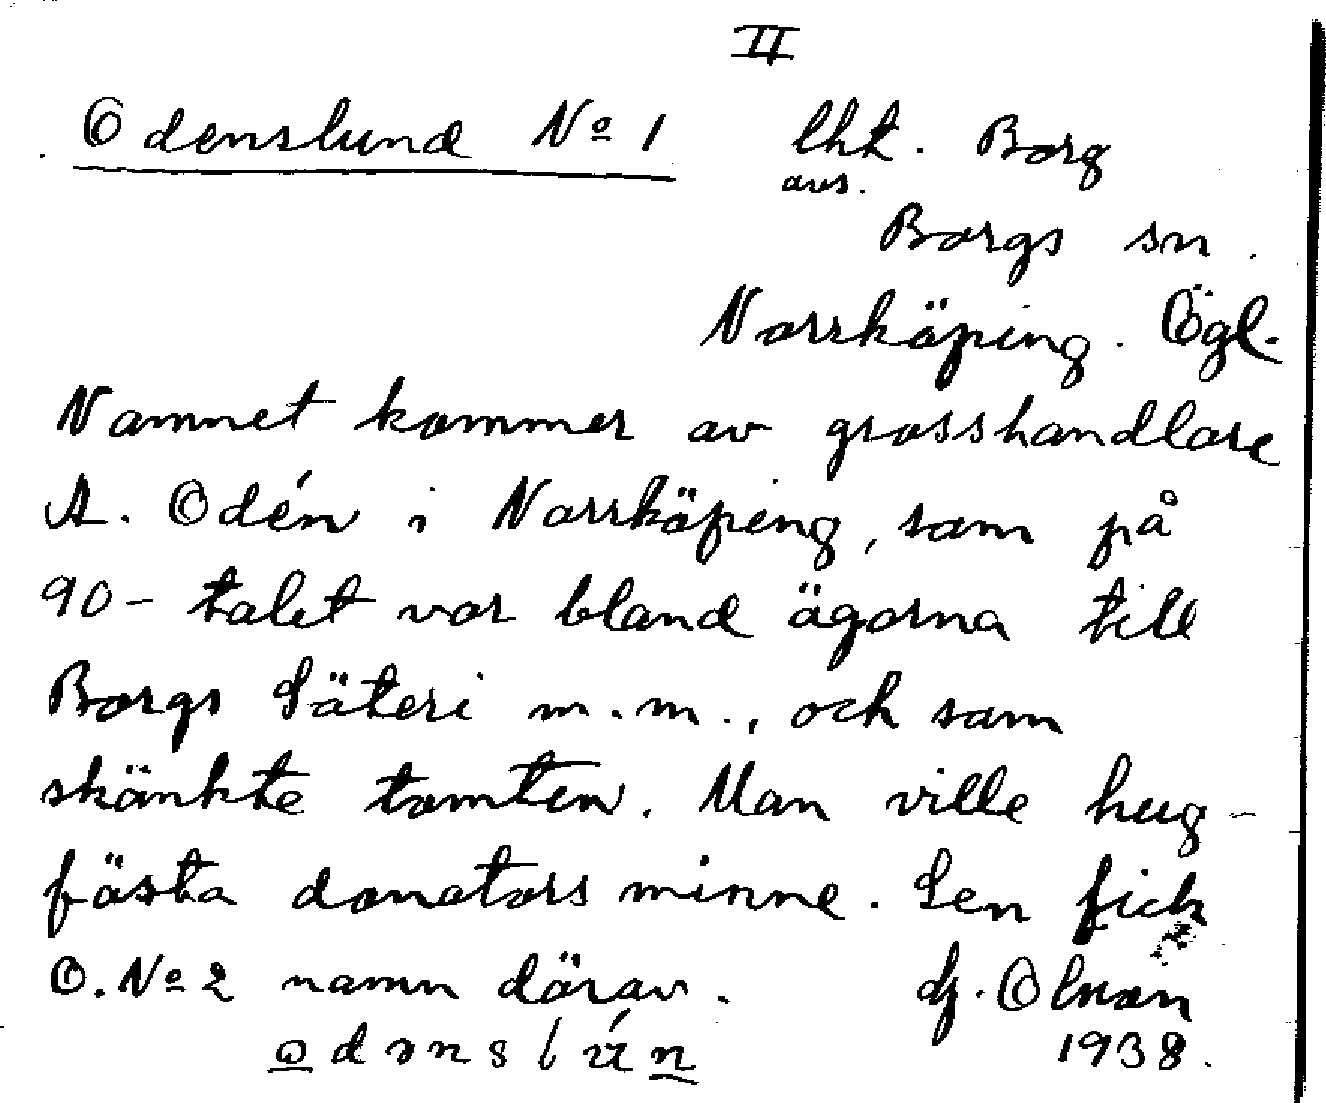 II
Odenslund No 1 lht. Borg
avs.
Borgs sn.
Norrköping. Ögl.
Namnet kommer av grosshandlare
A. Odén i Norrköping, som på
90-talet var bland ägarna till
Borgs Säteri m.m., och som
skänkte tomten. Man ville hug-
fästa donators minne. Sen fick
O. No 2 namn därav.
1938.